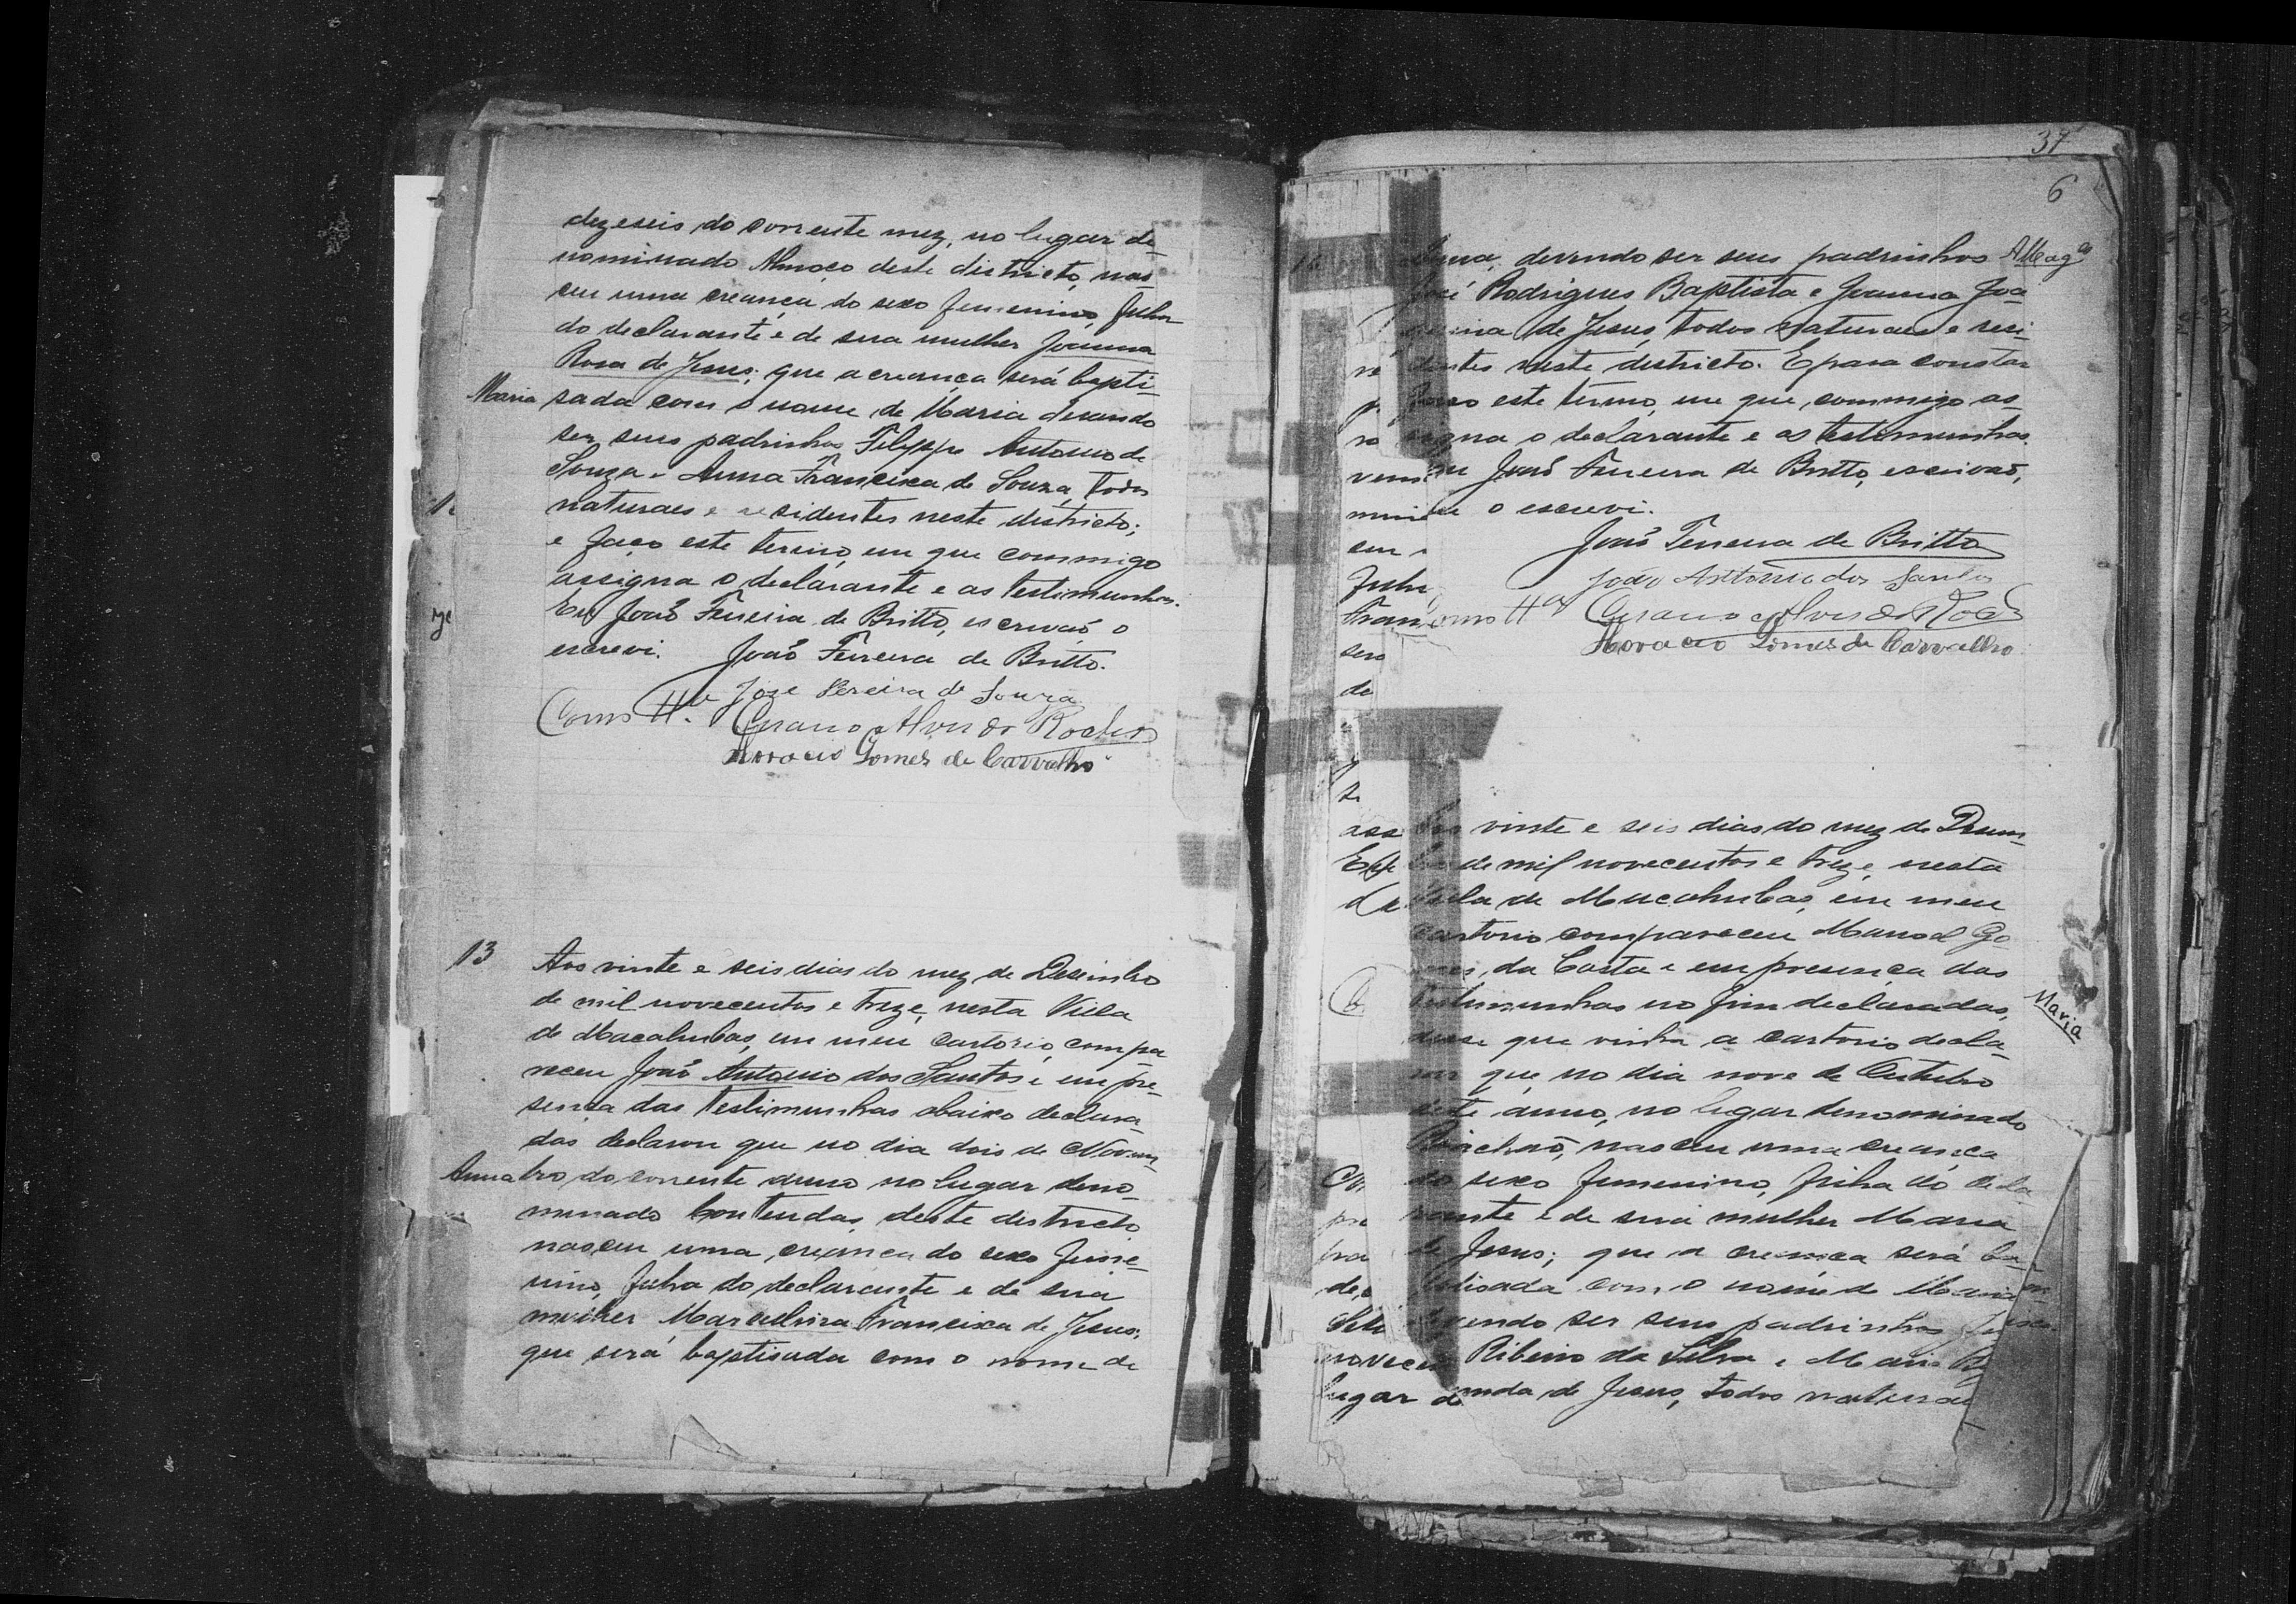 dezeseis do corrente mez, no lugar de-
nominado Almoço deste districto, nas-
ceu uma creança do sexo femenino, filha
do declarante e de sua mulher Joanna
Rosa de Jesus; que a creança será bapti-
Maria sada com o nome de Maria devendo
ser seus padrinhos Felippe Antonio de
Souza e Anna Francisca de Souza, todos
naturaes e residentes neste districto;
e faço este termo, em que commigo
assigna o declarante e as testimunhas.
Eu João Ferreira de Britto, escrivaõ o
escrevi. João Ferreira de Britto.
José Pereira de Souza
Como tta. Cesario Alves da Rocha
Horacio Gomes de Carvalho
13 Aos vinte e seis dias do mez de Desembro
de mil novecentos e treze, nesta Villa
de Macahubas, em meu cartorio, compa
receu João Antonio dos Santos e em pre-
sença das testimunhas abaixo declara-
das declarou que no dia dois de Novem-
Anna bro do corrente anno no lugar deno-
minado Contendas deste districto
nasceu uma creança do sexo feme-
nino, filha do declarante e de sua
mulher Marcellina Francisca de Jesus,
que será baptisada com o nome de
37
6
Anna, devendo ser seus padrinhos
José Rodrigues Baptista e Joanna Joa-
quina de Jesus, todos naturaes e resi-
dentes neste districto. E para constar
faço este termo, em que, commigo as-
signa o declarante e as testimunhas.
Eu João Ferreira de Britto, escrivaõ,
que o escrevi.
João Ferreira de Britto
João Antonio dos Santos
Como tta Cesario Alves da Rocha
Horacio Gomes de Carvalho
Aos vinte e seis dias do mez de Desem-
bro de mil novecentos e treze, nesta
Villa de Macahubas, em meu
cartorio compareceu Manoel Go-
mes da Costa e em presença das
testimunhas no fim declaradas,
Maria
disse que vinha a cartorio decla-
rar que no dia nove de Outubro
deste anno, no lugar denominado
Riachaõ, nasceu uma creança
do sexo femenino, filha do decla
rante e de sua mulher Maria
de Jesus; que a creança será ba-
ptisada com o nome de Maria
devendo ser seus padrinhos
Ribeiro da Silva e Maria
de Jesus, todos naturae